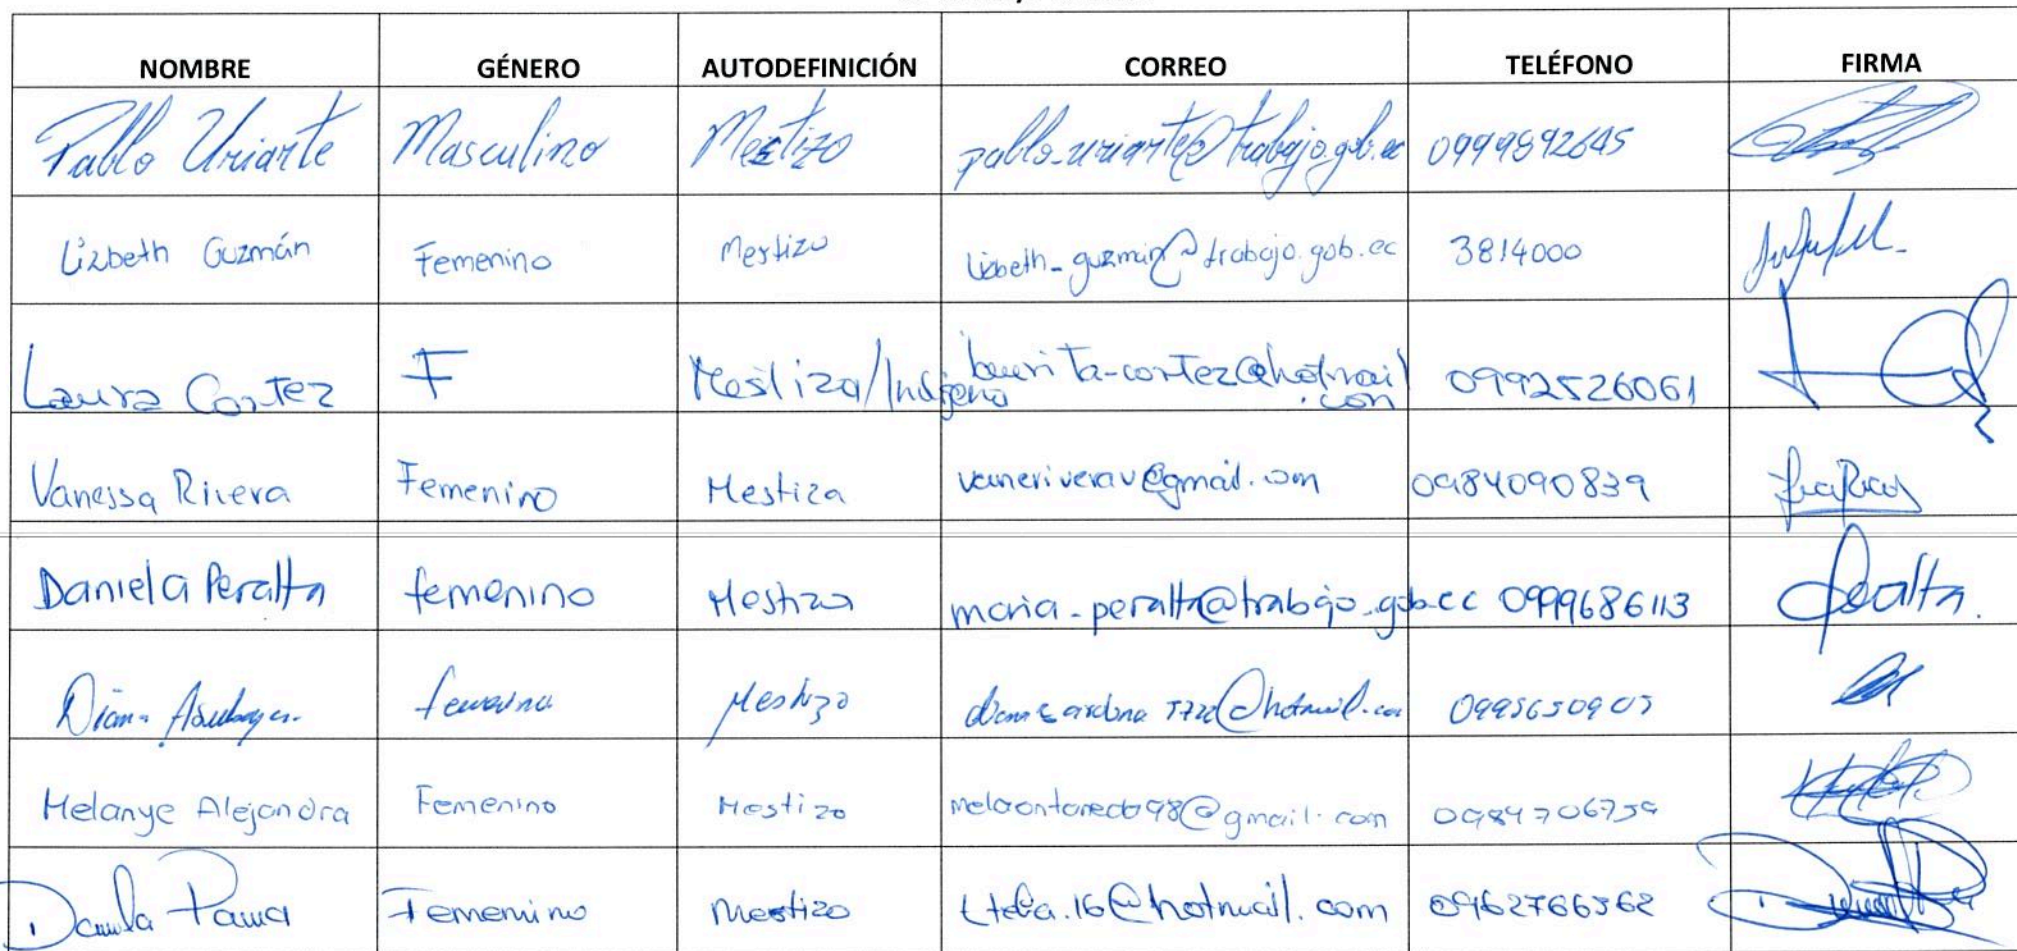 NOMBRE GÉNERO AUTODEFINICIÓN CORREO TELÉFONO FIRMA
Pablo Uriarte Masculino Mestizo pablo_uriarte@trabajo.gob.ec 0999892645
Lizbeth Guzmán Femenino Mestizo lizbeth_guzman@trabajo.gob.ec 3814000
Laura Cortez F Mestiza/Indígena laurita-cortez@hotmail.com 0992526061
Vanessa Rivera Femenino Mestiza vaneriverav@gmail.com 0984090839
Daniela Peralta femenino Mestizo maria-peralta@trabajo.gob.ec 0999686113 Peralta.
Diana femenino Mestizo
Melanye Alejandra Femenino Mestizo 0984706759
Femenino mestizo 0962766362